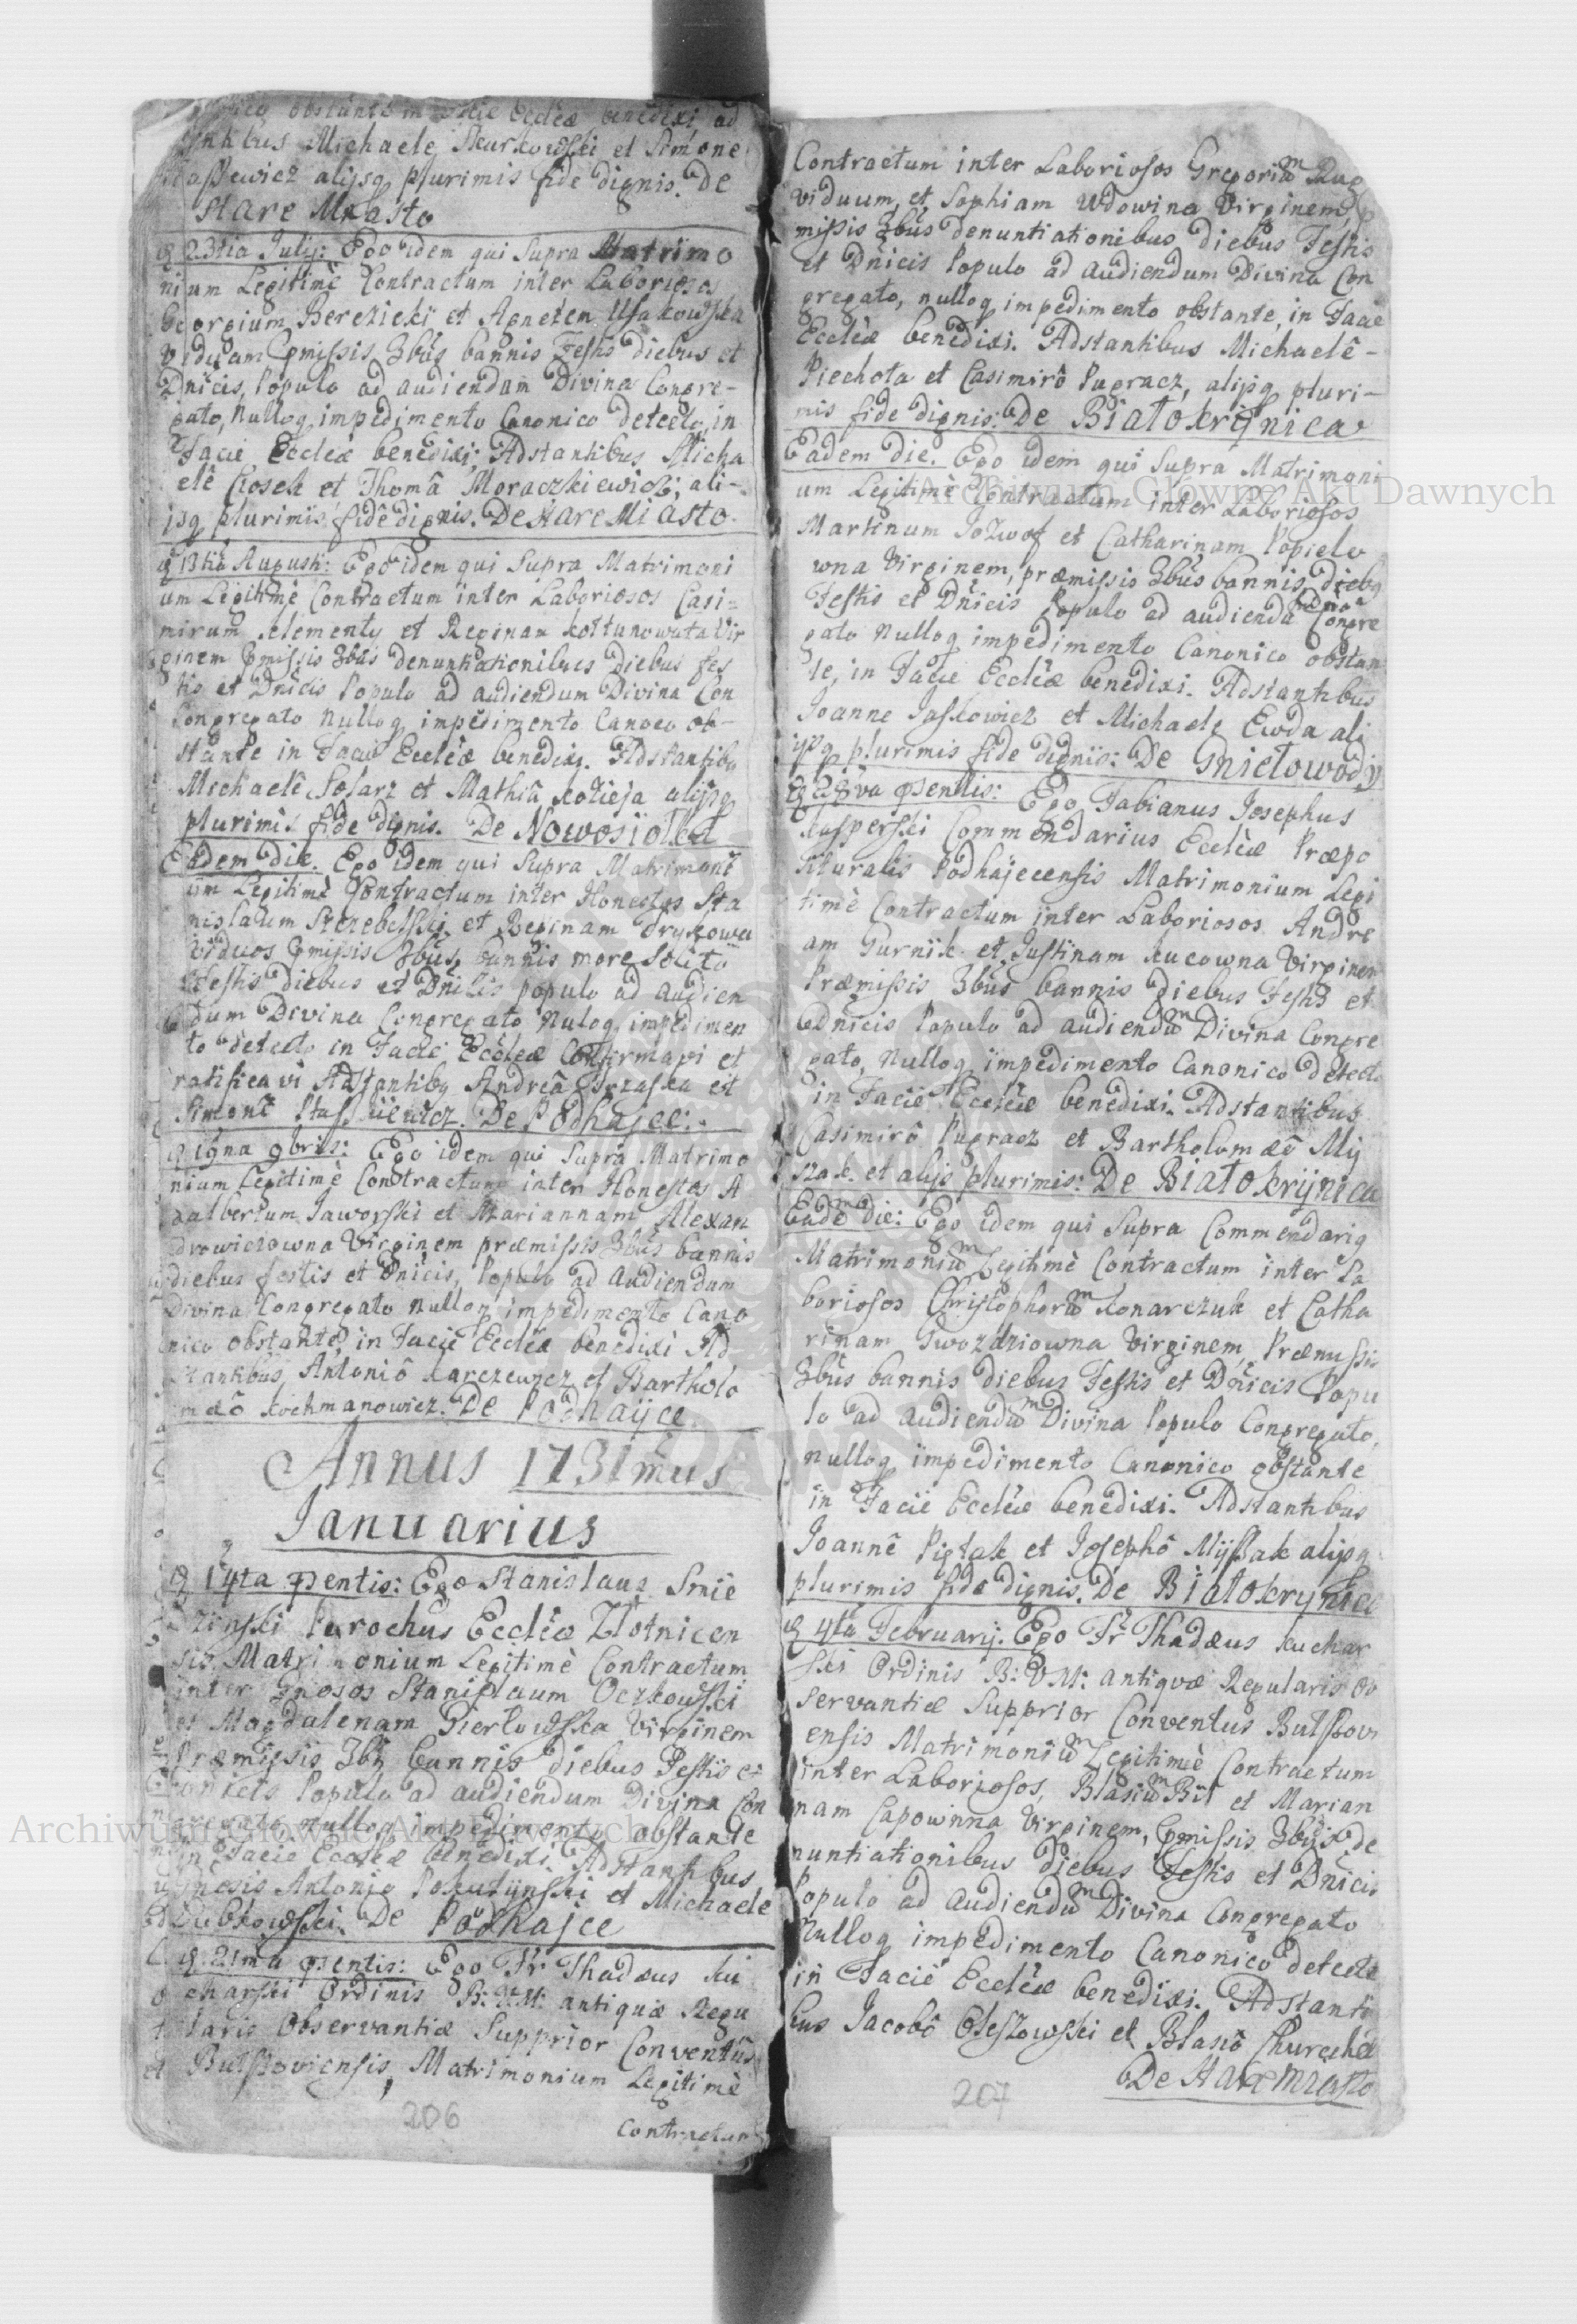 obstante in facie Eccłeæ benedixi, ad
Michaele Skurkowski et Simone
alijsq plurimis fide dignis. De
Stare Miasto
23tia Julij: Ego idem qui Supra Matrimo
nium Legitimè Contractum inter Laboriosos
Georgium Berezicki et Agnetem Usakowska
Viduam Pmissis 3bus bannis Festis diebus et
Dnicis, Populo ad audiendam Divina Congre-
gato, Nulloq impedimento Canonico detecto, in
Facie Eccleæ benedixi; Adstantibus Micha
elê Ciosek et Thomâ Moraczkiewicz, ali-
jsq plurimis fidê dignis. De Stare Miasto.
13tia Augusti: Ego idem qui Supra Matrimoni
um Legitimè Contractum inter Laboriosos Casi-
mirum Klementy et Reginam Kołtunowna Vir
ginem Pmissis 3bus denuntiationibus Diebus fes
tis et Dnicis Populo ad audiendum Divina Con
Congregato Nulloq impedimento Canoco ob-
stante in Facie Eccleæ benedixi. Adstantibq
Michaelê Solarz et Mathiâ Kozieja alijsq
plurimis fide dignis. De Nowosiołka
Eadem die. Ego idem qui Supra Matrimoni
um Legitimè Contractum inter Honestos Sta
nislaum Strzebelski et Reginam Drykowa
viduos Pmissis 3bus bannis more Solito
Festis diebus et Dnicis populo ad audien
dum Divina Congregato Nuloq impedimen
to detecto in Facie Eccleæ Confirmavi et
ratificavi Adstantibq Andreâ Hrzaska et
Simonê Stasskiewicz. De Podhajce:
19na 9bris: Ego idem qui Supra Matrimo
nium Legitimè Contractum inter Honestos A
dalbertum Jaworski et Mariannam Alexan
drowiczowna Virginem præmissis 3bus bannis
diebus festis et Dnicis, Populo ad Audiendum
Divina Congregato nulloq impedimento Cano
nico obstante, in Facie Eccleæ benedixi Ad
stantibus Antoniô Karczewicz et Bartholo
mæô Kochmanowicz. De Podhajce
Annus 1731mus
Januarius
14ta psentis: Ego Stanislaus Smie
dzinski Parochus Eccleæ Złotnicen
sis Matrimonium Legitimè Contractum
inter Gnosos Stanislaum Oczkowski
et Magdalenam Pierłowska Virginem
Præmissis 3bq bannis diebus Festis et
Dnicis Populo ad audiendum Divina Con
gregato nulloq impedimento obstante
in Facie Eccleæ benedixi. Adstantibus
Gnosis Antonio Poszutynski et Michaele
Dubkowski. De Podhajce
21ma psentis: Ego Fr Thadæus Ku
charski Ordinis B: V: M: antiquæ Regu
laris Observantiæ Supprior Conventûs
Butszoviensis, Matrimonium Legitimè
206
Contractum
Contractum inter Laboriosos Gregoriũ
Viduum, et Sophiam Wdowina Virginem,
missis 3bus denuntiationibus diebus Festis
et Dnicis Populo ad audiendum Divina Con
gregato, nulloq impedimento obstante, in Facie
Eccleæ benedixi. Adstantibus Michaelê-
Piechota et Casimirô Pugracz, alijsq pluri-
mis fide dignis: De Białokrynica
Eadem die. Ego idem qui Supra Matrimoni
um Legitimè Contractum inter Laboriosos
Martinum Jozwof et Catharinam Popielo
wna Virginem, præmissis 3bus bannis diebq
Festis et Dnicis Populo ad audiendũ Divina Congre
gato Nulloq impedimento Canonico obstan
te, in Facie Eccleæ benedixi. Adstantibus
Joanne Jaskowicz et Michaele Ewda ali
jsq plurimis fide dignis: De Gnilowody
28va psentis: Ego Fabianus Josephus
Kasperski Commendarius Eccleæ Præpo
situralis Podhajecensis Matrimonium Legi
timè Contractum inter Laboriosos Andre
am Gurnik et Justinam Kucowna Virginem
Præmissis 3bus bannis diebus Festis et
Dnicis Populo ad audiendũ Divina Congre
gato, Nulloq impedimento Canonico detecto
in Facie Eccleæ benedixi. Adstantibus
Casimirô Pugracz et Bartholomæô My
szak et alijs plurimis: De Białokrynica
Eadẽ die: Ego idem qui Supra Commendariq
Matrimoniũ Legitimè Contractum inter La
boriosos Christophorũ Konarczuk et Catha
rinam Gwozdziowna Virginem, Præmissis
3bus bannis diebus Festis et Dnicis Popu
lo ad audiendũ Divina Populo Congregato,
nulloq impedimento Canonico obstante
in Facie Eccleæ benedixi. Adstantibus
Joannê Piętak et Josephô Myssak alijsq
plurimis fide dignis. De Białokrynica
4ta Februarij. Ego Fr Thadæus Kuchar
ski Ordinis B: V M: antiquæ Regularis Ob
servantiæ Supprior Conventus Butszovi
ensis Matrimoniũ Legitimè Contractum
inter Laboriosos, Blasiũ Bił et Marian
nam Capowinna Virginem, Pmissis 3bus de
nuntiationibus diebus Festis et Dnicis
Populo ad audiendũ Divina Congregato
Nulloq impedimento Canonico detecto
in Facie Eccleæ benedixi. Adstanti
bus Jacobô Oleszowski et Blasiô
De Stare Miasto
207
Archiwum Główne Akt Dawnych
Archiwum Główne Akt Dawnych